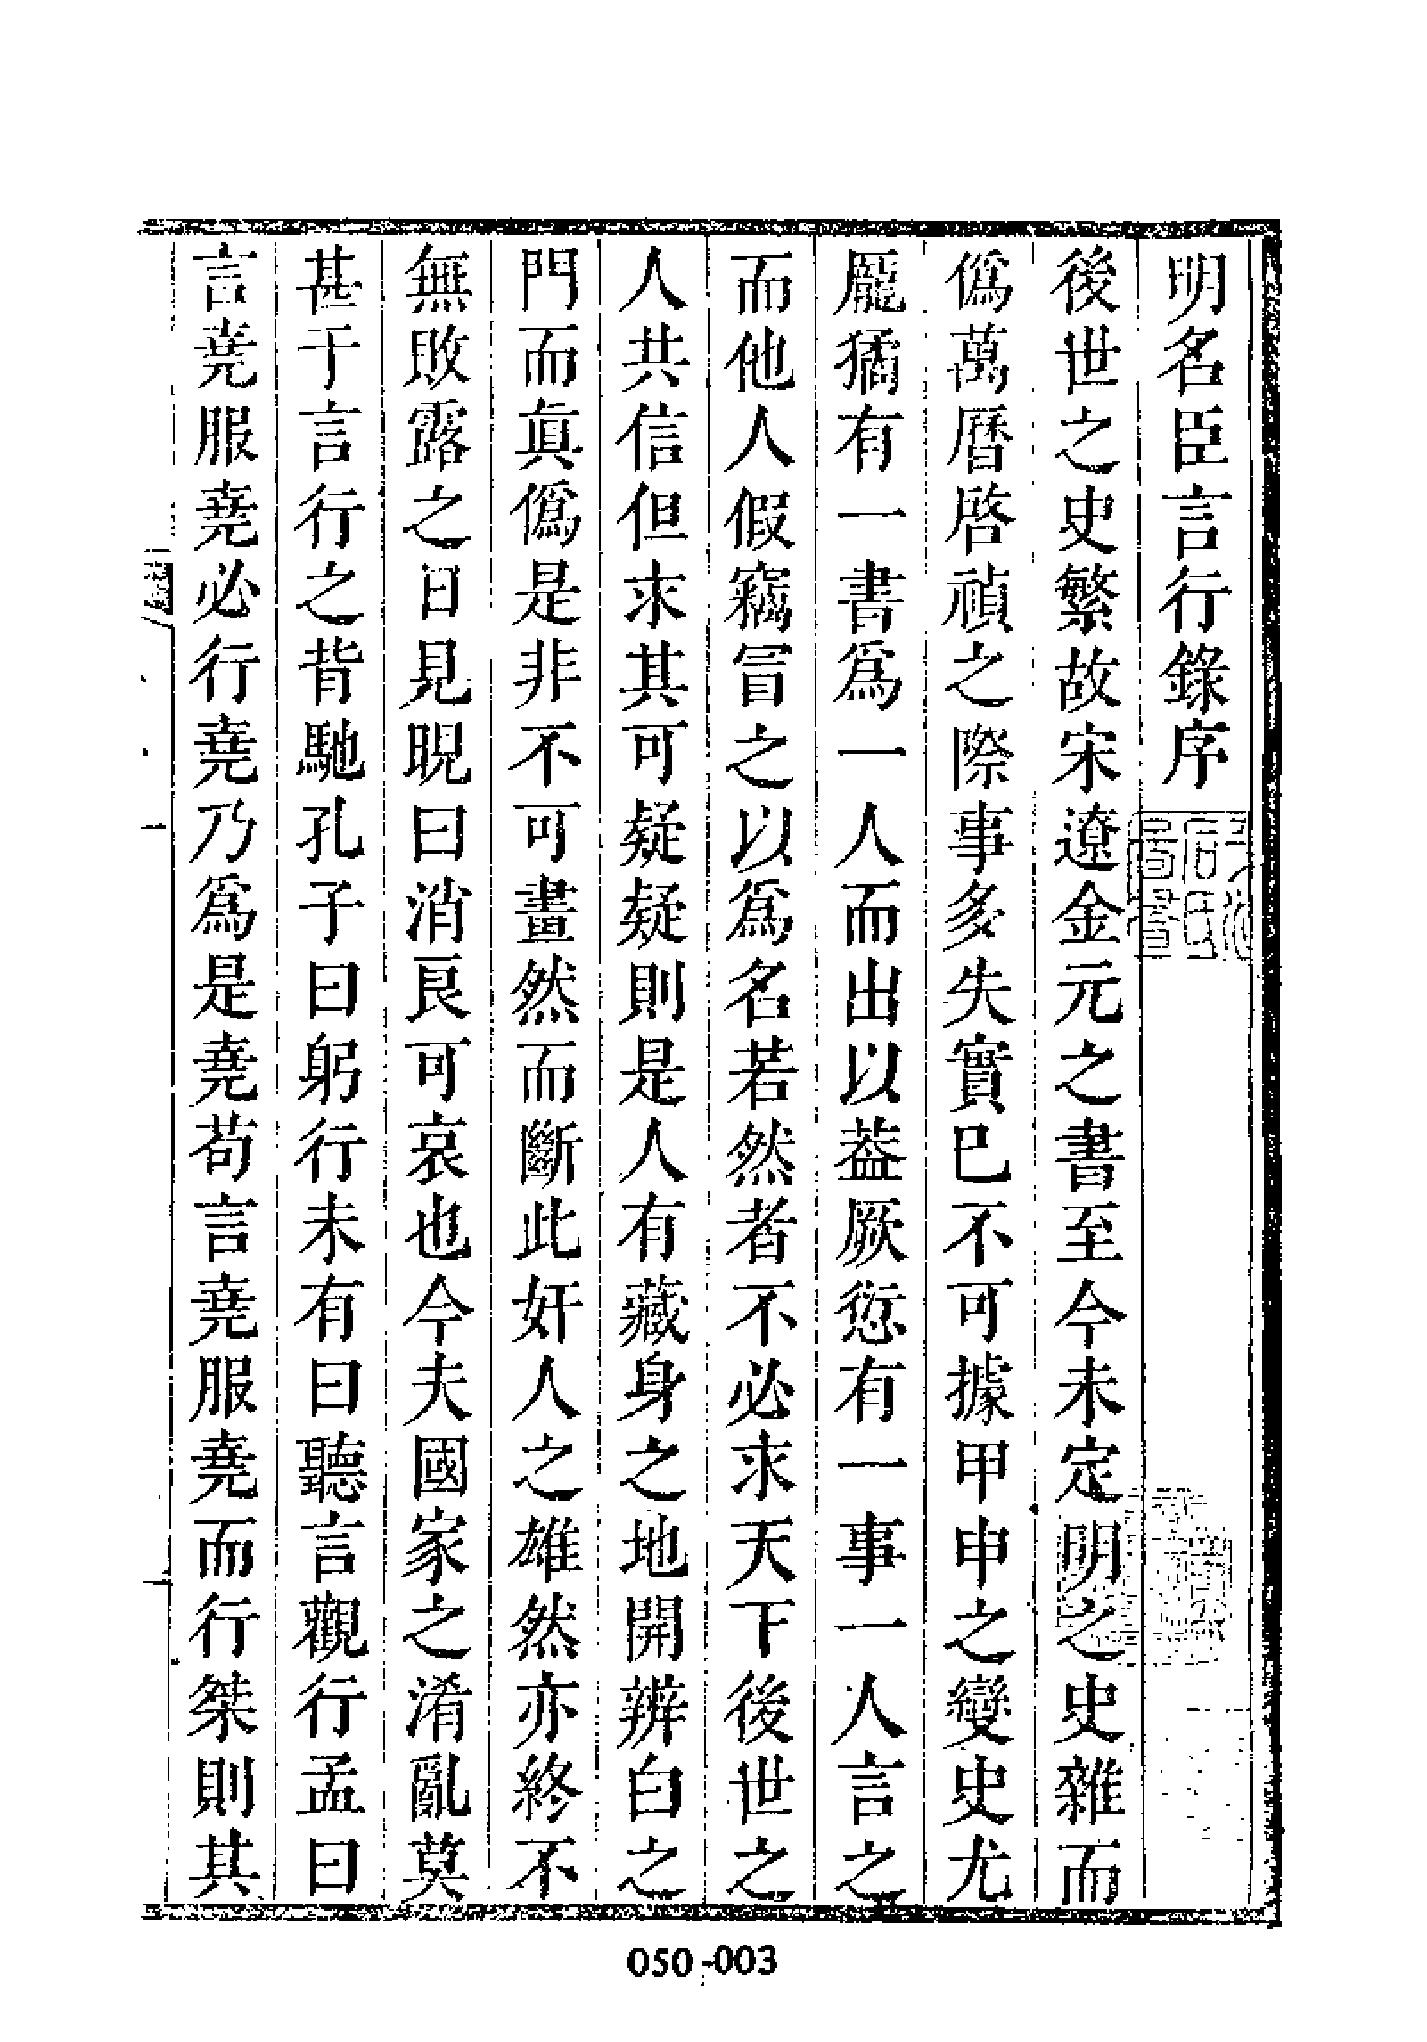 明名臣言行錄序
後世之史繁故宋遼金元之書至今未定明之史雜而
僞萬曆啓禎之際事多失實已不可據甲申之變史尤
厖獝有一書爲一人而出以葢厥愆有一事一人言之
而他人假竊冒之以爲名若然者不必求天下後世之
人共信但求其可疑疑則是人有藏身之地開辨白之
門而眞僞是非不可畫然而斷此奸人之雄然亦終不
無敗露之日見晛曰消良可哀也今夫國家之淆亂莫
甚于言行之背馳孔子曰躬行未有曰聽言觀行孟曰
言堯服堯必行堯乃爲是堯苟言堯服堯而行桀則其
050-003